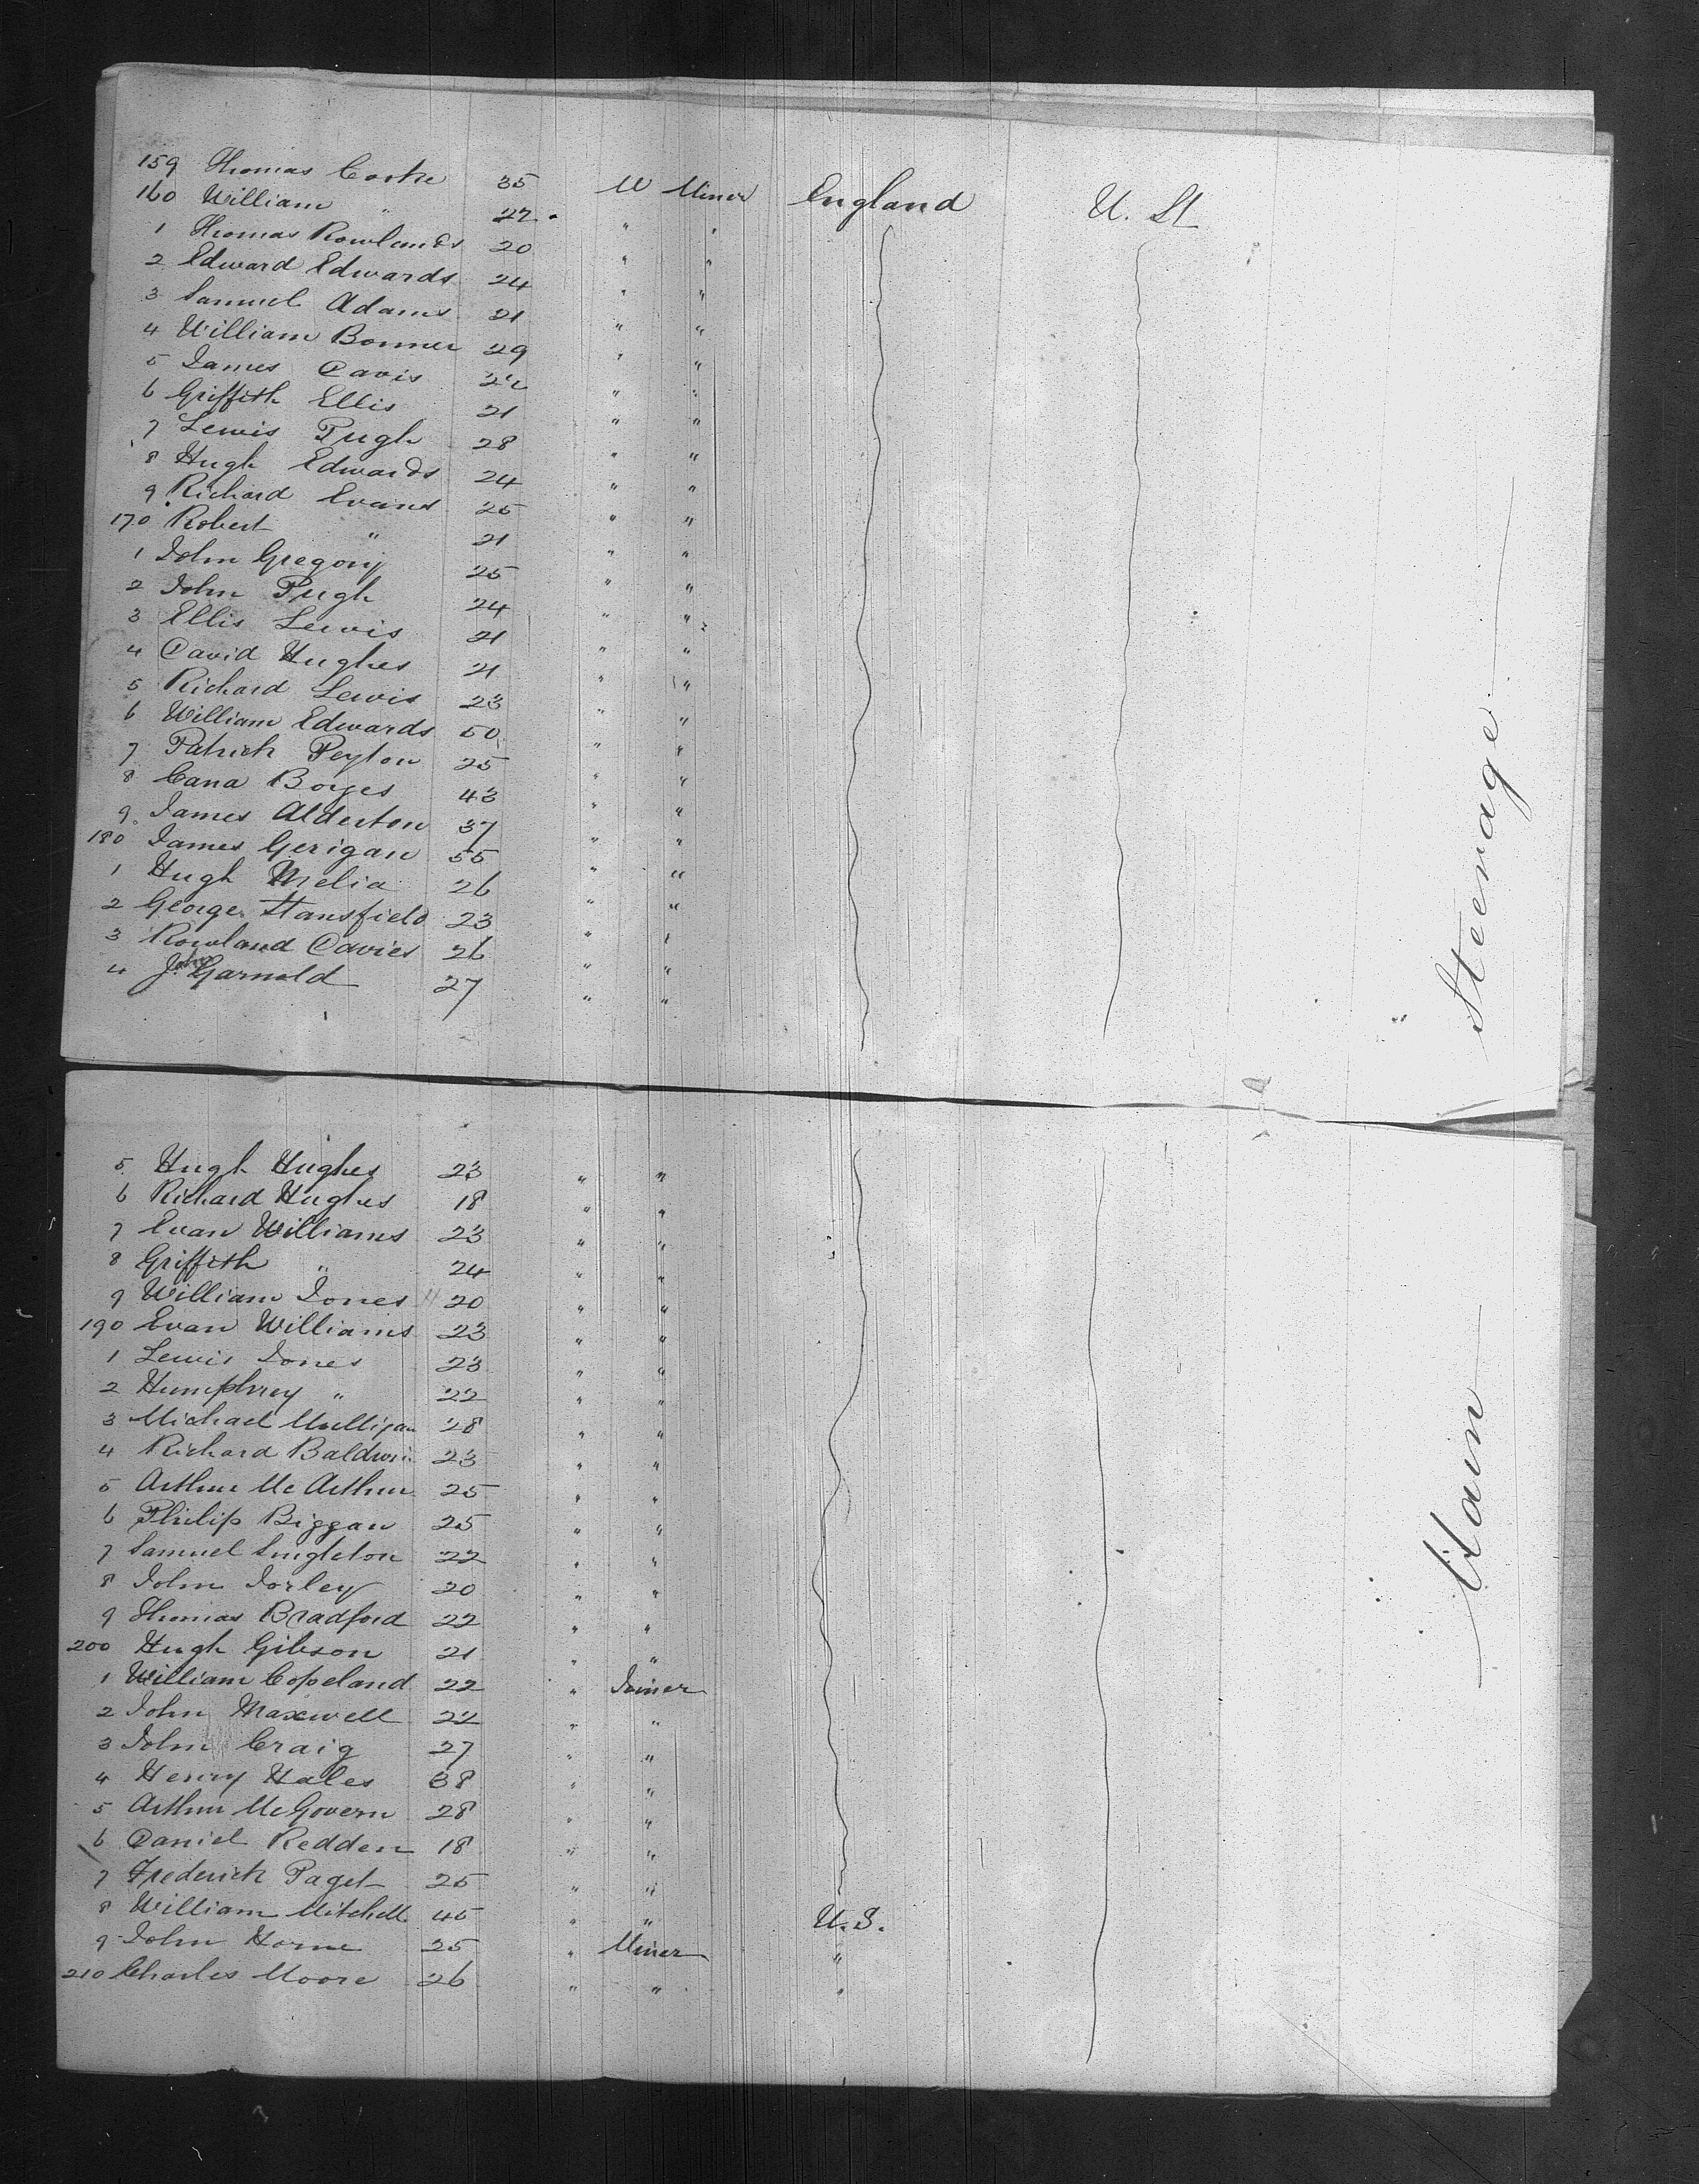 159 Thomas Cooke 35 M Miner England U. St
160 William " 22 " "
1 Thomas Rowlands 20 " "
2 Edward Edwards 24 " "
3 Samuel Adams 21 " "
4 William Bonner 29 " "
5 James Davis 22 " "
6 Griffith Ellis 21 " "
7 Lewis Pugh 28 " "
8 Hugh Edwards 24 " "
9 Richard Evans 25 " "
170 Robert " 21 " "
1 John Gregory 25 " "
2 John Pugh 24 " "
3 Ellis Lewis 21 " "
4 David Hughes 21 " "
5 Richard Lewis 23 " "
6 William Edwards 50 " "
7 Patrick Peyton 25 " "
8 Cana Borges 43 " "
9 James Alderton 37 " "
180 James Gerigan 55 " "
1 Hugh Melia 26 " "
2 George Stansfield 23 " "
3 Rowland Davies 26 " "
4 John Garnold 27 " "
Steerage
5 Hugh Hughes 23 " "
6 Richard Hughes 18 " "
7 Evan Williams 23 " "
8 Griffith " 24 " "
9 William Jones 20 " "
190 Evan Williams 23 " "
1 Lewis Jones 23 " "
2 Humphrey " 22 " "
3 Michael Mulligan 28 " "
4 Richard Baldwin 23 " "
5 Arthur Mc Arthur 25 " "
6 Philip Biggan 25 " "
7 Samuel Singleton 22 " "
8 John Jorley 20 " "
9 Thomas Bradford 22 " "
200 Hugh Gibson 21 " "
1 William Copeland 22 " Joiner
2 John Maxwell 22 " "
3 John Craig 27 " "
4 Henry Hales 38 " "
5 Arthur McGovern 28 " "
6 Daniel Redden 18 " "
7 Frederick Paget 25 " "
8 William Mitchell 45 " " U.S.
9 John Horne 25 " Miner "
210 Charles Moore 26 " " "
Main